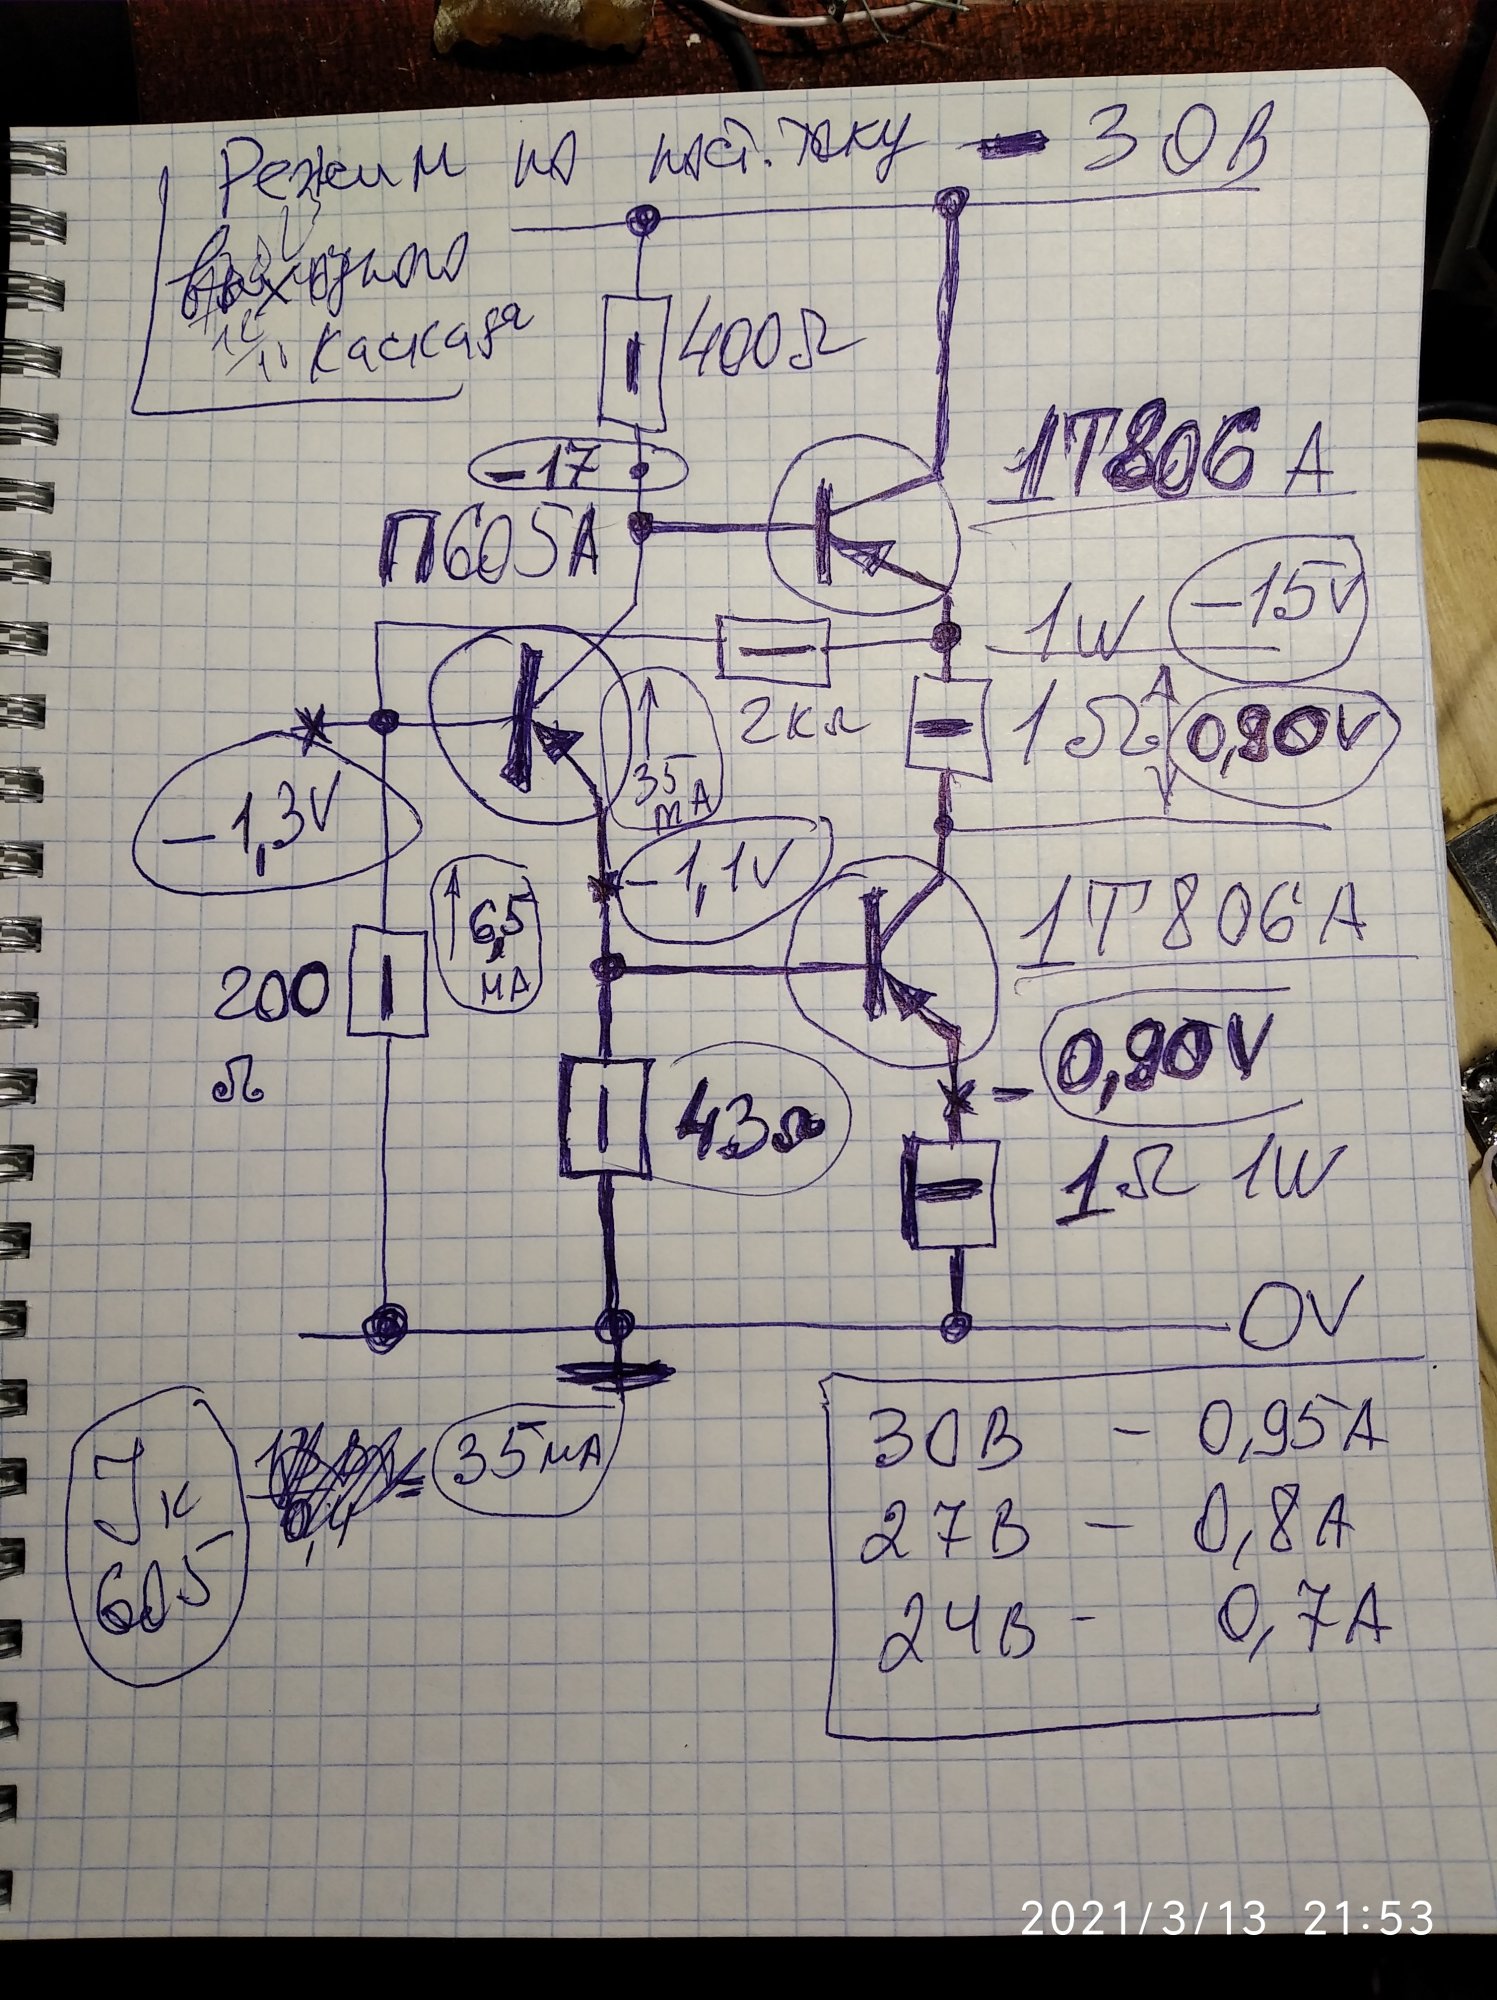 Режим по пост. току – 30В
выходного
каскада
400Ω
-17
1Т806А
П605А
1W -15V
2кΩ
1Ω 0,90V
35
mA
-1,3V
-1,1V
6,5
мА
1Т806А
200
Ω
- 0,90V
43Ω
1Ω 1W
0V
Iк 35мА
605
30В - 0,95А
27В - 0,8А
24В - 0,7А
2021/3/13 21:53